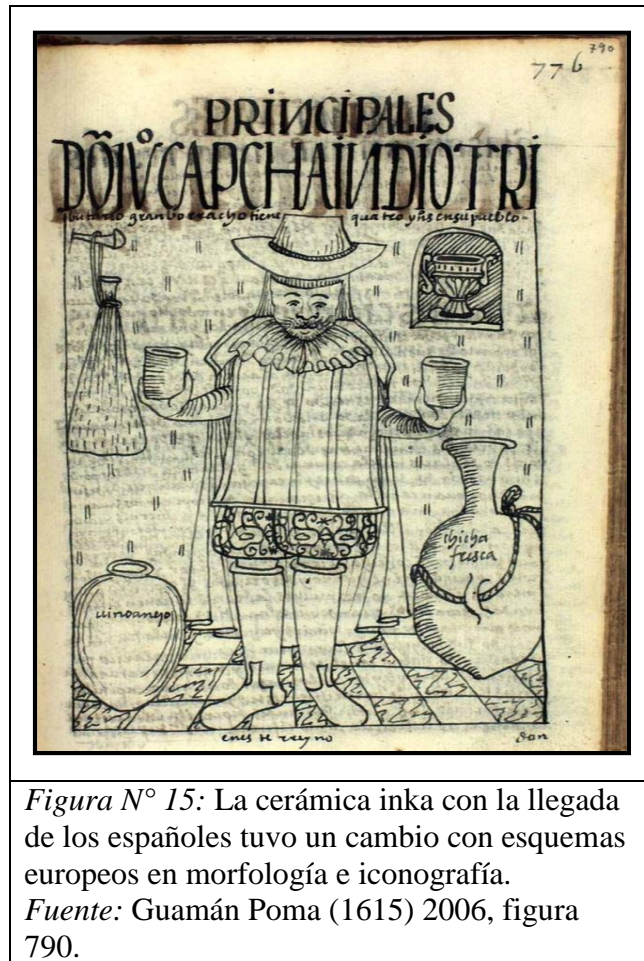 790
776
PRINCIPALES
DŌ Jvº CAPCHA INDIO TRI
butario gran borracho tiene quatro yns en su pueblo-
chicha
fresca
uino anejo
enes de reyno
don
Figura N° 15: La cerámica inka con la llegada
de los españoles tuvo un cambio con esquemas
europeos en morfología e iconografía.
Fuente: Guamán Poma (1615) 2006, figura
790.